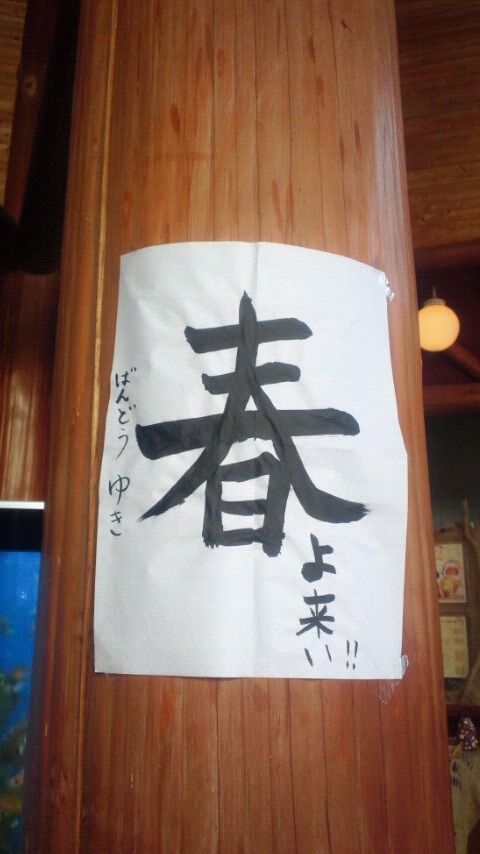 春
よ来い!!
ばんどう ゆき